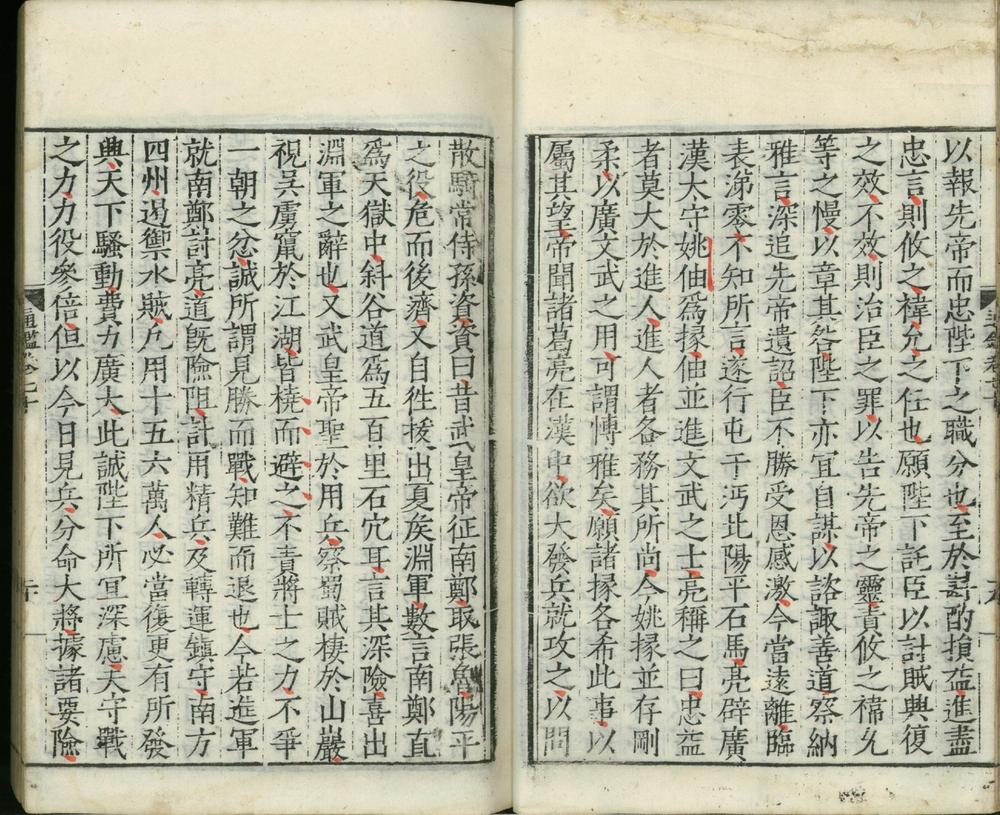 以報先帝而忠陛下之職分也至於斟酌損益進盡
忠言則攸之禕允之任也願陛下託臣以討賊興復
之效不效則治臣之罪以告先帝之靈責攸之禕允
等之慢以章其咎陛下亦宜自謀以諮諏善道察納
雅言深追先帝遺詔臣不勝受恩感激今當遠離臨
表涕零不知所言遂行屯于沔北陽平石馬亮辟廣
漢太守姚伷爲掾伷並進文武之士亮稱之曰忠益
者莫大於進人進人者各務其所尚今姚掾並存剛
柔以廣文武之用可謂愽雅矣願諸掾各希此事以
屬其望帝聞諸葛亮在漢中欲大發兵就攻之以問
散騎常侍孫資資曰昔武皇帝征南鄭取張魯陽平
之役危而後濟又自徃拔出夏矦淵軍數言南鄭直
爲天獄中斜谷道爲五百里石穴耳言其深險喜出
淵軍之辭也又武皇帝聖於用兵察蜀賊棲於山巖
視吳虜竄於江湖皆橈而避之不責將士之力不爭
一朝之忿誠所謂見勝而戰知難而退也今若進軍
就南鄭討亮道旣險阻計用精兵及轉運鎮守南方
四州遏禦水賊凡用十五六萬人必當復更有所發
興天下騷動費力廣大此誠陛下所宜深慮夫守戰
之力力役參倍但以今日見兵分命大將據諸要險
通鑑卷七十